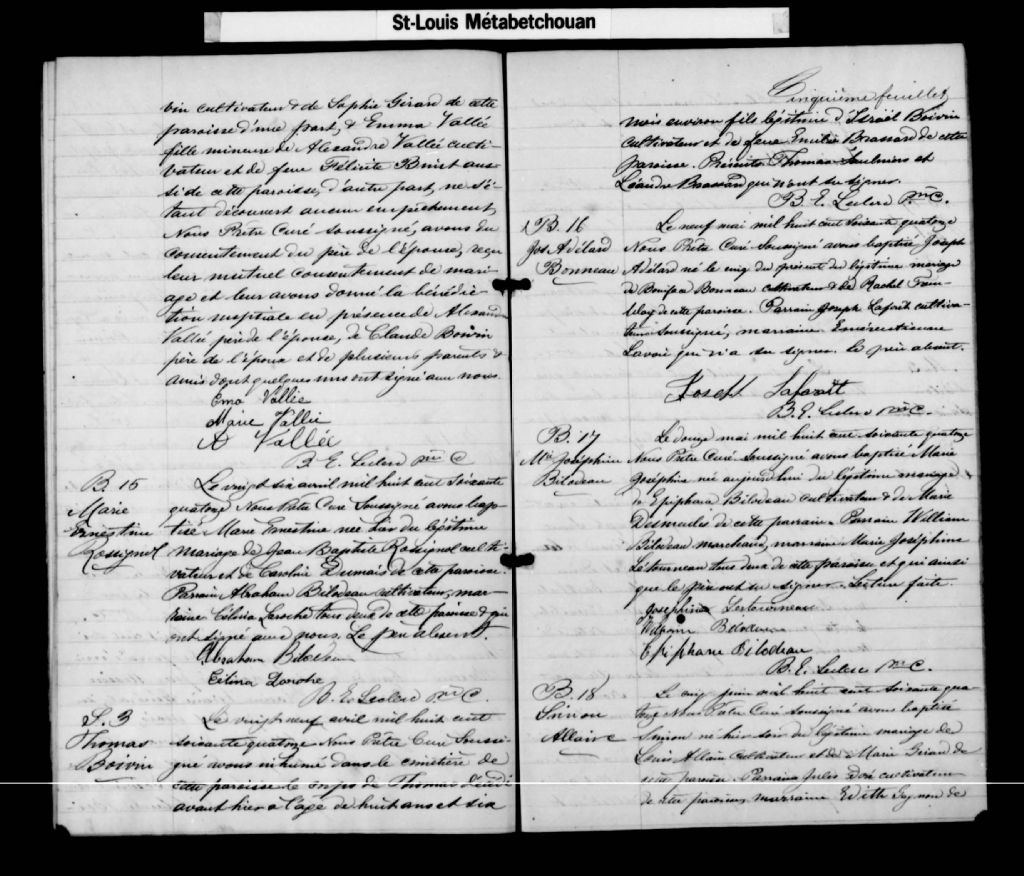 St-Louis Métabetchouan
vin cultivateur & de Sophie Girard de cette
paroisse d'une part, & Emma Vallée
fille mineure de Alexandre Vallée culti-
vateur et de feue Félicité Brust aus-
si de cette paroisse, d'autre part, ne s'é-
tant découvert aucun empêchement,
Nous Prêtre Curé soussigné, avons du
consentement du père de l'épouse, reçu
leur mutuel consentement de mari-
age et leur avons donné la bénédic-
tion nuptiale en présence de Alexandre
Vallée père de l'épouse, de Claude Boivin
père de l'époux et de plusieurs parents &
amis dont quelques uns ont signé avec nous.
Ema Vallie
Marie Vallie
A Vallée
B. E. Leclerc Ptre C
B. 15
Marie
Ernestine
Rossignol
Le vingt six avril mil huit cent soixante
quatorze Nous Prêtre Curé Soussigné avons bap-
tisé Marie Ernestine née hier du légitime
mariage de Jean Baptiste Rossignol culti-
vateur et de Caroline Dumais de cette paroisse.
Parrain Abraham Bilodeau cultivateur, mar-
raine Célina Laroche tous deux de cette paroisse & qui
ont signé avec nous. Le père absent.
Abraham Bilodeau
Célina Laroche
B. E. Leclerc Ptre C.
S. 3
Thomas
Boivin
Le vingt neuf avril mil huit cent
soixante quatorze Nous Prêtre Curé Soussi-
gné avons inhumé dans le cimetière de
cette paroisse le corps de Thomas décédé
avant hier à l'âge de huit ans et six
Cinquième feuillet
mois environ fils légitime d'Israël Boivin
cultivateur et de feue Emilie Brassard de cette
paroisse. Présents Thomas et
Léandre Brassard qui n'ont su signer.
B. E. Leclerc Ptre C.
B. 16
Jos Adélard
Bonneau
Le neuf mai mil huit cent soixante quatorze
Nous Prêtre Curé Soussigné avons baptisé Joseph
Adélard né le cinq du présent du légitime mariage
de Boniface Bonneau cultivateur & de Rachel Trem-
blay de cette paroisse. Parrain Joseph cultiva-
teur soussigné, marraine Emérentienne
Lavoie qui n'a su signer. Le père absent.
Joseph
B. E. Leclerc Ptre C.
B. 17
Mie Joséphine
Bilodeau
Le douze mai mil huit cent soixante quatorze
Nous Prêtre Curé Soussigné avons baptisé Marie
Joséphine née aujourd'hui du légitime mariage
de Epiphane Bilodeau cultivateur & de Marie
Desmeules de cette paroisse. Parrain William
Bilodeau marchand, marraine Marie Joséphine
Létourneau tous deux de cette paroisse et qui ainsi
que le père ont su signer. Lecture faite.
Josephine Lestourneau
William Bilodeau
Epiphane Bilodeau
B. E. Leclerc Ptre C.
B. 18
Simon
Allaire
Le cinq juin mil huit cent soixante qua-
torze Nous Prêtre Curé soussigné avons baptisé
Simon né hier soir du légitime mariage de
Louis Allain cultivateur et de Marie Girard de
cette paroisse. Parrain Jules cultivateur
de cette paroisse, marraine Edith Gagnon de